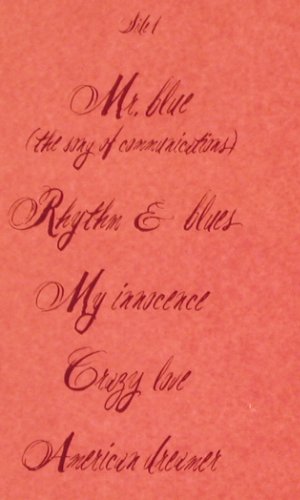 Side 1
Mr. blue
(the song of communications)
Rhythm & blues
My innocence
Crazy love
American dreamer